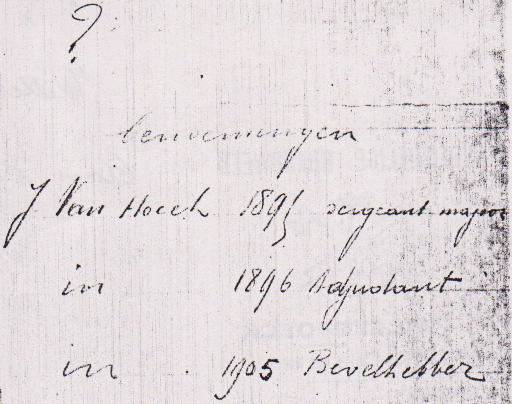 ?
benoemingen
J Van Hoeck 1895 sergeant major
in 1896 Adjudant
in 1905 Bevelhebber